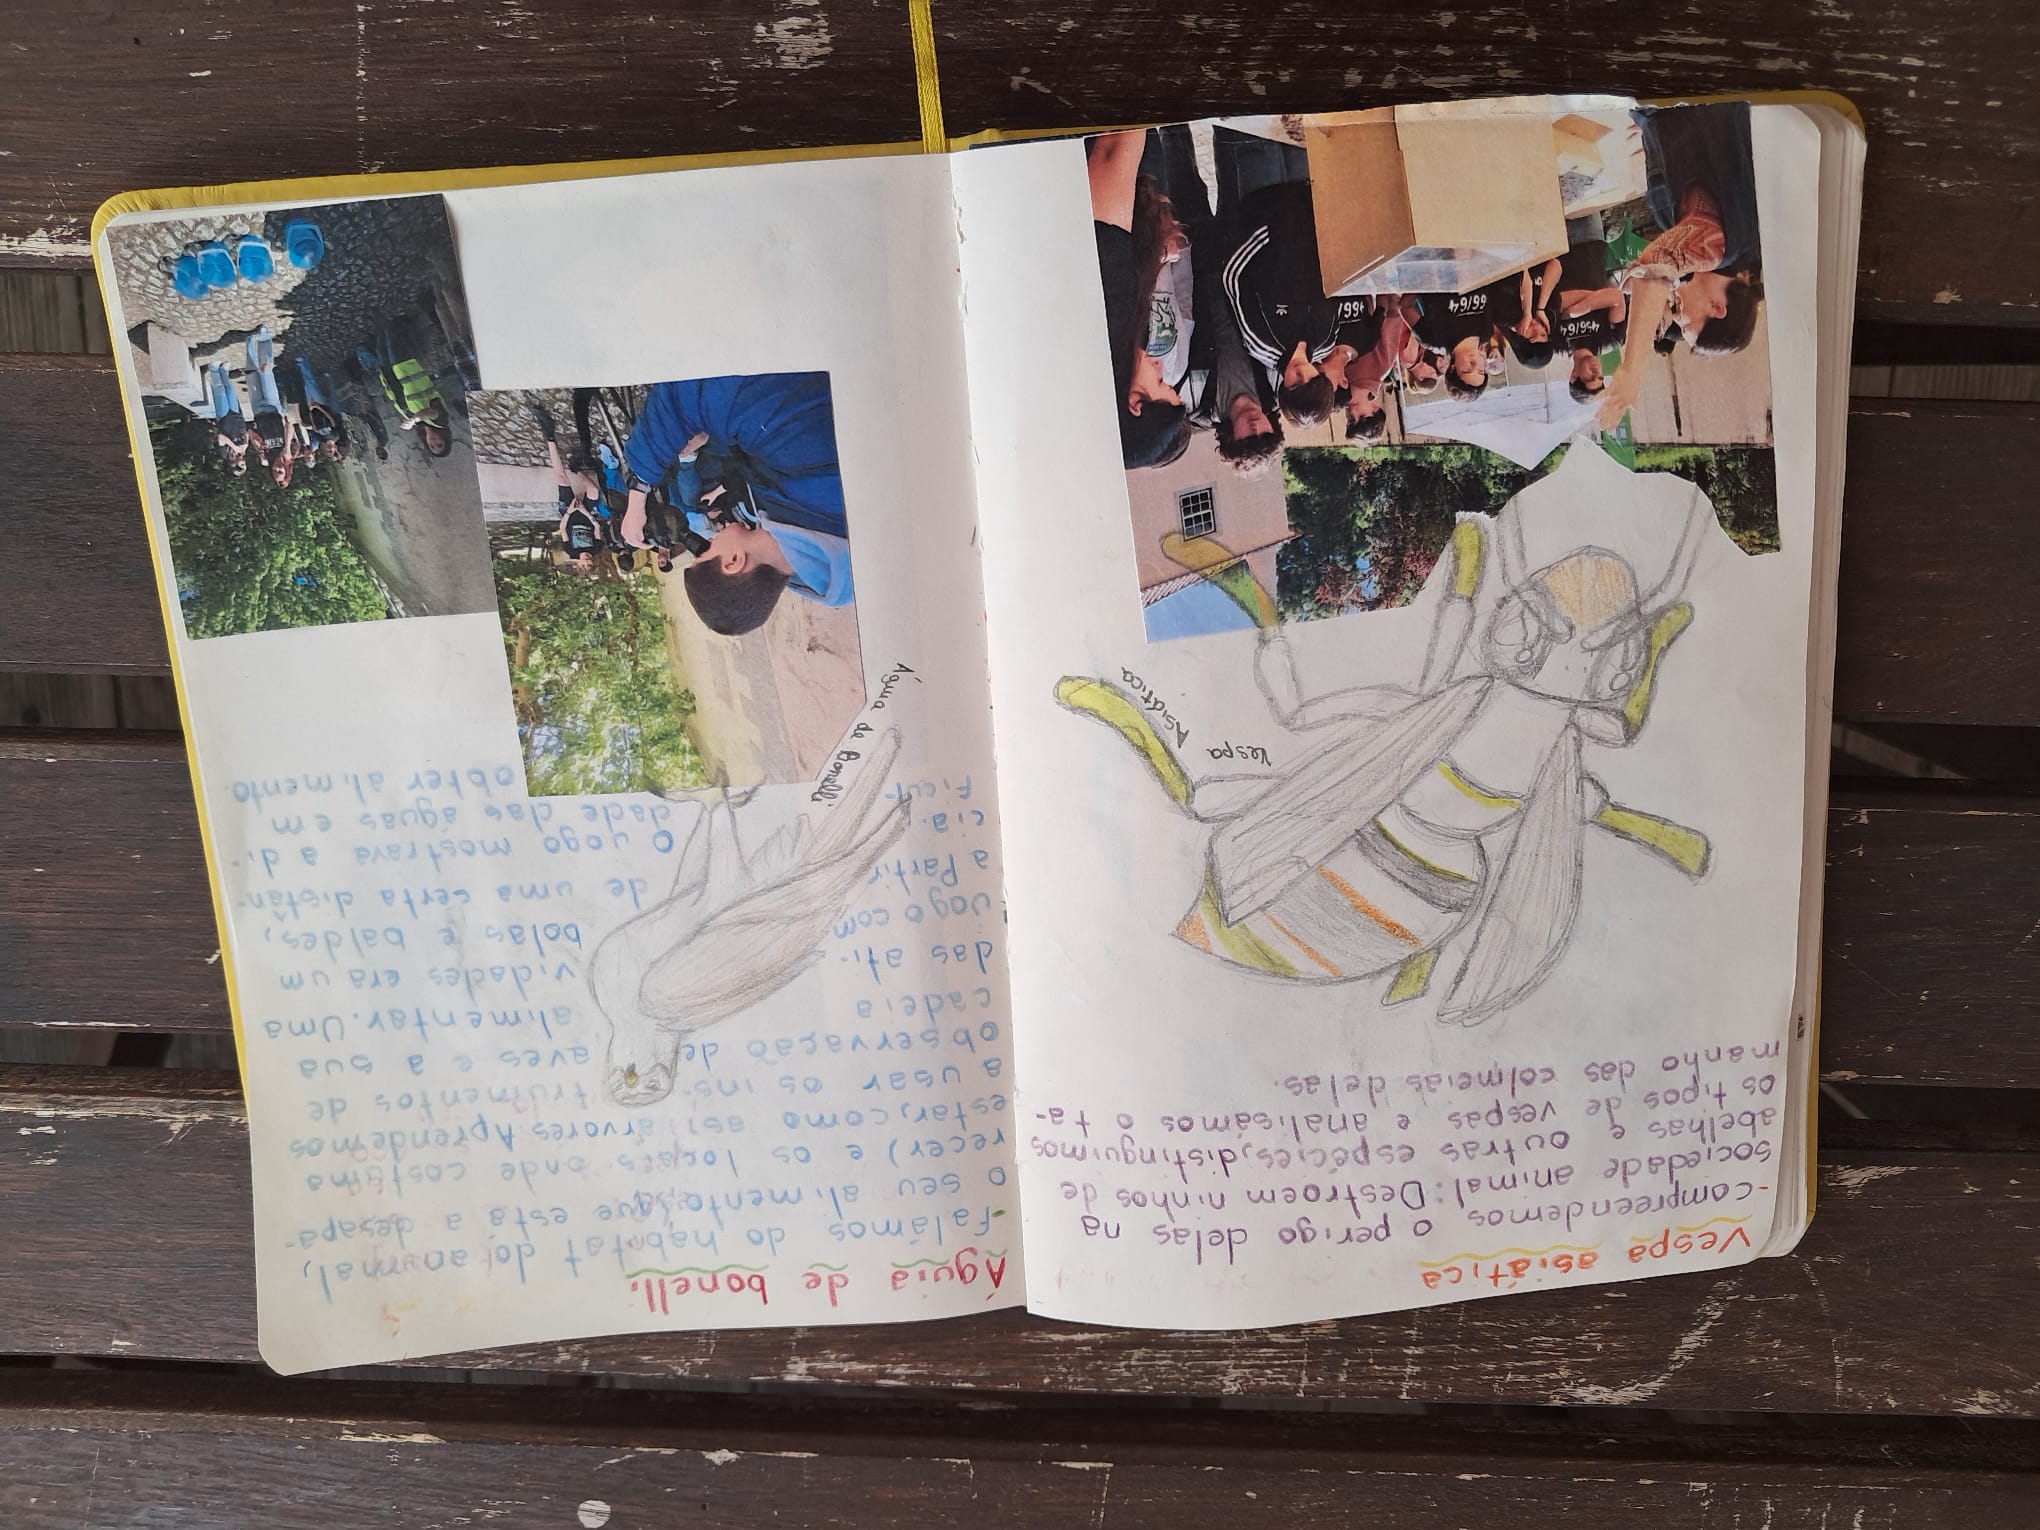 Vespa asiática
-compreendemos o perigo delas na
sociedade animal: Destroem ninhos de
abelhas e outras espécies, distinguimos
os tipos de vespas e analisámos o ta-
manho das colmeias delas.
Vespa Asiática
Águia de bonelli
-Falámos do habitat do animal,
o seu alimento(que está a desapa-
recer) e os locais onde costuma
estar, como as árvores Aprendemos
a usar os ins- trumentos de
observação de aves e a sua
cadeia alimentar. Uma
das ati- vidades era um
Jogo com bolas e baldes,
a Partir de uma certa distân-
cia. O Jogo mostrava a di-
ficul- dade das águas em
obter alimento.
Águia de Bonelli
456/64
66/64